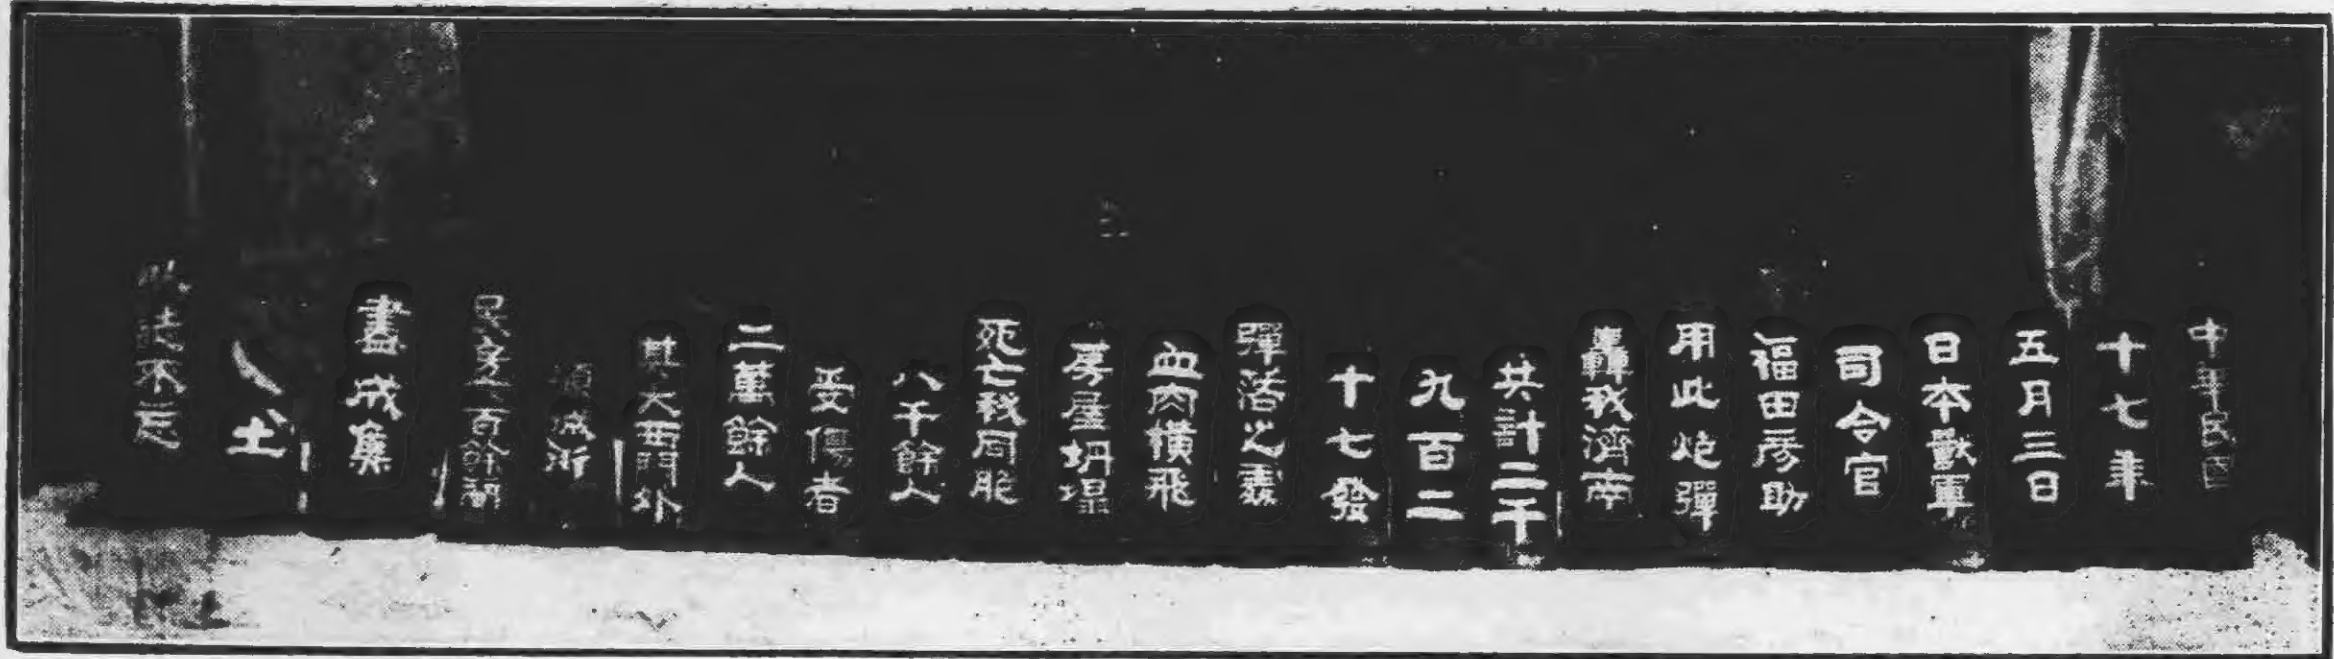 中華民國
十七年
五月三日
日本獸軍
司令官
福田彦助
用此炮彈
轟我濟南
共計二千
九百二
十七發
彈落之處
血肉橫飛
房屋坍塌
死亡我同胞
八千餘人
受傷者
二萬餘人
其大西門外
順城街
民房百餘間
盡成焦
土
以誌不忘